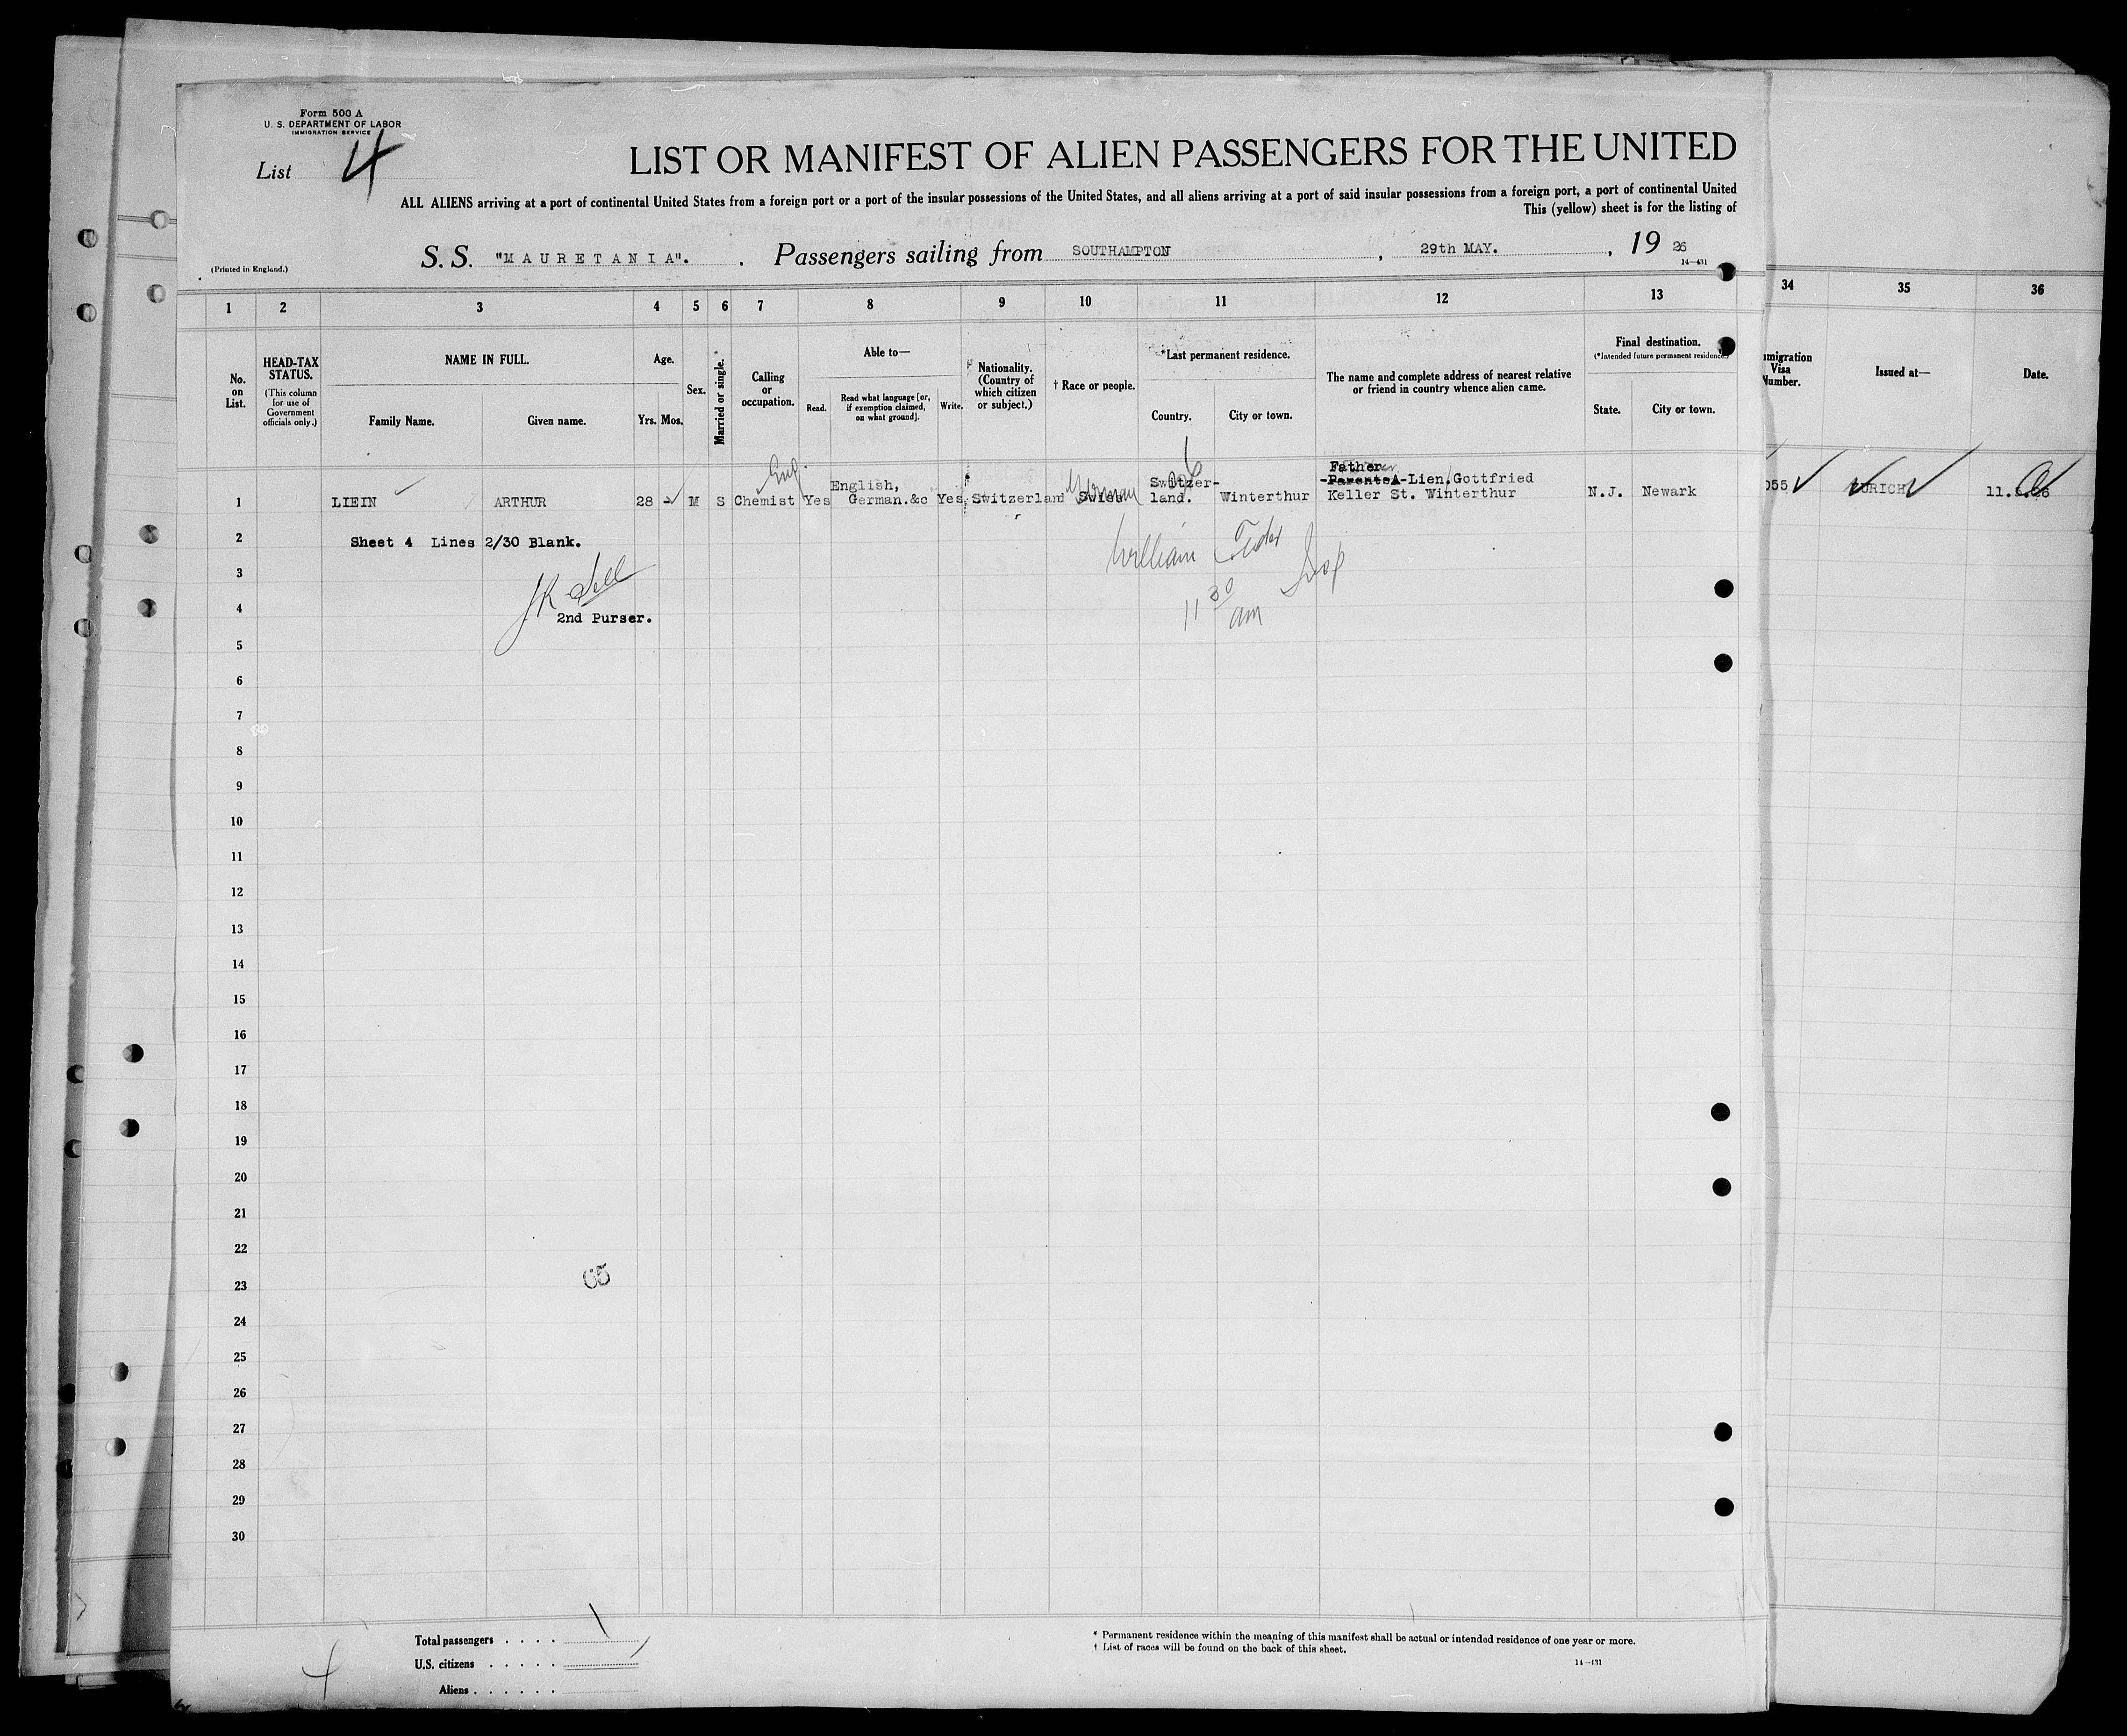 Form 500 A
U. S. DEPARTMENT OF LABOR
IMMIGRATION SERVICE
List 4
LIST OR MANIFEST OF ALIEN PASSENGERS FOR THE UNITED
ALL ALIENS arriving at a port of continental United States from a foreign port or a port of the insular possessions of the United States, and all aliens arriving at a port of said insular possessions from a foreign port, a port of continental United
This (yellow) sheet is for the listing of
(Printed in England.)
S. S. "MAURETANIA". Passengers sailing from SOUTHAMPTON, 29th MAY., 19 26
14—431
1 2 3 4 5 6 7 8 9 10 11 12 13 34 35 36
No. on List.
HEAD-TAX STATUS.
(This column for use of Government officials only.)
NAME IN FULL.
Family Name. Given name.
Age.
Yrs. Mos.
Sex.
Married or single.
Calling or occupation.
Able to—
Read. Read what language [or, if exemption claimed, on what ground]. Write.
Nationality. (Country of which citizen or subject.)
† Race or people.
*Last permanent residence.
Country. City or town.
The name and complete address of nearest relative or friend in country whence alien came.
Final destination.
(*Intended future permanent residence.)
State. City or town.
mmigration Visa Number.
Issued at—
Date.
Father
English, Switzer- -Parents A-Lien.Gottfried
1 LIEIN ARTHUR 28 - M S Chemist Yes German.&c Yes Switzerland Swiss German land. Winterthur Keller St. Winterthur N.J. Newark 055 ZURICH
2 Sheet 4 Lines 2/30 Blank.
William
3
11 30 am
4 2nd Purser.
5
6
7
8
9
10
11
12
13
14
15
16
17
18
19
20
21
22
23
65
24
25
26
27
28
29
30
Total passengers . . . .
U.S. citizens . . . . .
Aliens . . . . . .
4
* Permanent residence within the meaning of this manifest shall be actual or intended residence of one year or more.
† List of races will be found on the back of this sheet.
14—431